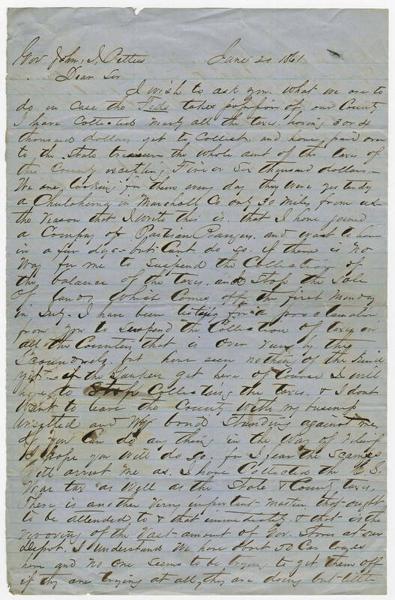 Gov. John J. Pettus June 20 186
Dear Sir
I wish to ask you what we are to
do in case the Feds takes possession of our County
I have Collected nearly all the taxes having 3 or 4
thousand dollars yet to Collect and have paid over
to the State treasurer the whole amt of the taxes of
the County excepting five or Six thousand dollars
We are looking for them every day they were yesterday
a in Marshall Co only 30 miles from us
the reason that I write this is that I have joined
a Company of Partisan Rangers and want to leave
in a few days but Cant do so if there is no
way for me to Suspend the Collecting of
the balance of the taxes and Stop the Sale
of lands which Comes off the first Monday
in July. I have been looking for a proclamation
from you to suspend the Collection of taxes in
all the Counties that is over run by the
Scoundrels but have seen nothing of the kind
yet if the Yankees get here of course I will
have to Stop Collecting the taxes, & I dont
want to leave the County with my business
unsettled and my bond Standing against me
if you can do any thing in the way of relief
I hope you will do so, for I fear the Scamps
will arrest me as I have Collected the C.S.
War tax as well as the State & County taxes.
There is another very important matter that ought
to be attended to & that immediately & that is the
removing of the vast amount of Gov. Stores at our
Depot. I understand we have 50 Cars loads
here and no one seems to be trying to get them off
if they are trying at all they are doing but little